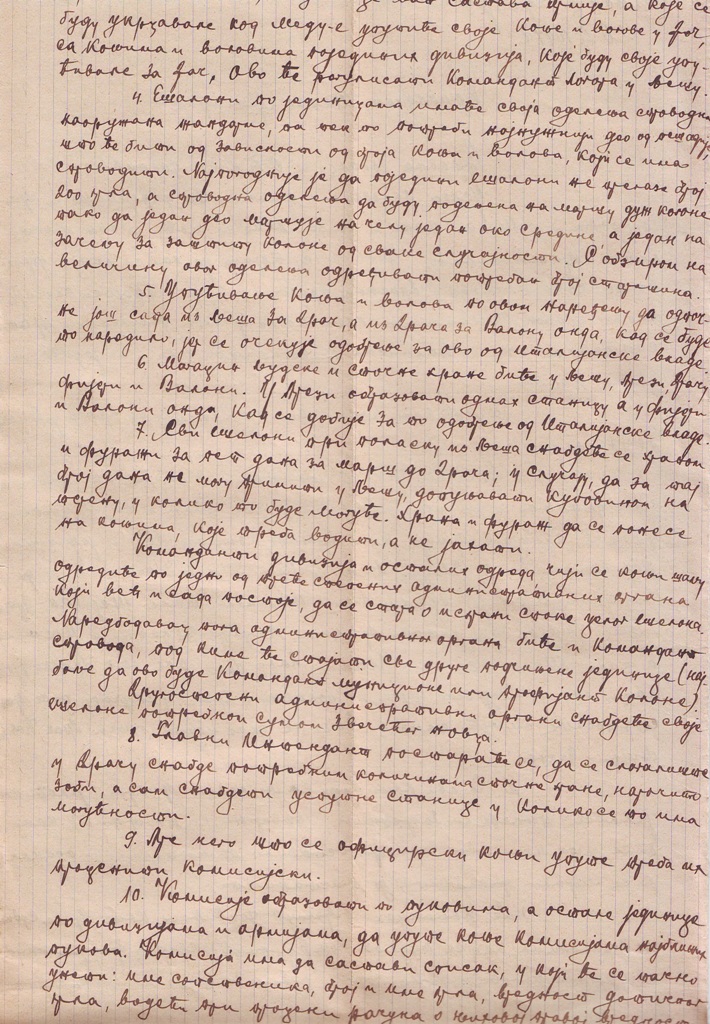 састава трупе, а које се
буду укрцавале код Медуе упутите своје коње и волове у Драч,
са коњима и воловима појединих дивизија, које буду своје упу-
ћивале за Драч, Ово ће расписати Командант Логора у Љешу.
4. Ешалони по јединицама имаће своја оделења спроводна
наоружана жандарме, па тек по потреби најнужнији део од пешадије
што ће бити од зависности од броја коња и волова, који се има
спроводити. Најпогодније је да поједини ешалони не прелазе број
200 грла, а спроводна оделења да буду подељена на маршу дуж колоне
тако да један део маршује на челу један око средине, а један на
зачељу за заштиту колоне од сваке случајности. С обзиром на
величину ових оделења одређивати потребан број старешина.
5. Упућивање коња и волова по овом наређењу да одпоч-
не још сада из Љеша за Драч, а из Драча за Валону онда, кад се буде
то наредило, јер се очекује одобрење за ово од Италијанске владе.
6. Магацин људске и сточне хране биће у Љешу, Врези Драчу
Фијери и Валони. У Врези образовати одмах станицу а у Фијери
и Валони онда, кад се добије за то одобрење од Италијанске владе.
7. Сви ешелони при поласку из Љеша снабдеће се храном
и фуражи за пет дана за марш до Драча; у случају, да за тај
број дана не могу примити у Љешу, допуњавати куповином на
терену, у колико то буде могуће. Храна и фураж да се понесе
на коњима, које треба водити, а не јахати.
Команданти дивизија и осталих одреда чији се коњи шаљу
одредиће по једног од треће степених административних органа
који већ и сада постоје, да се стара о исхрани стоке целог ешелона.
Наредбодавац тога административног органа биће и Командант
спровода, под киме ће стајати све друге подчињене јединице (нај
боље да ово буде Командант муниционе или профијант колоне).
Другостепени административни органи снабдеће своје
ешелоне потребном сумом звечећег новца.
8. Главни Интендант постараће се, да се слагалиште
у Драчу снабде потребним количинама сточне хране, нарочито
зоби, а сам снабдети успутне станице у колико се то има
могућности.
9. Пре него што се официрски коњи упуте треба их
проценити комисијски.
10. Комисије образовати по пуковима, а остале јединице
по дивизијама и армијама, да упуте коње комисијама најближих
пукова. Комисија има да састави списак, у који ће се тачно
унети: име сопственика, број и име грла, вредност дотичног
грла, водећи при процени рачуна о њиховој правој вредности